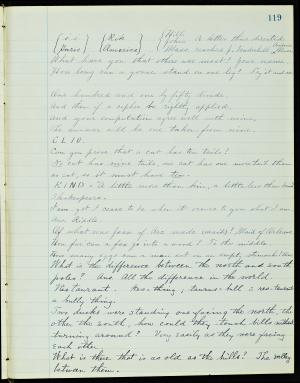 119
A letter thus directed
What have you that others use most? Your name.
How long can a goose stand on one leg? Try it and see
One hundred and one by fifty divide,
And then if a cipher be rightly applied,
And your computation agree well with mine,
The answer will be one taken from nine.
CLIO.
Can you prove that a cat has ten tails?
No cat has nine tails, one cat has one more tail than
no cat, so it must have ten.
KIND - A little more than kin, a little less than kind
Shakespeare.
when it comes to you what I am
Riddle.
Of what was Joan of Arc made (maid)? Maid of Orleans
How far can a fox go into a wood? To the middle.
How many eggs can a man eat on an empty stomach? One
What is the difference between the north and south
poles? Ans. All the difference in the world.
Restaurant. Res - thing, taurus - bull = res-taurant
a bully thing.
Two ducks were standing one facing the north, the
other the south, how could they touch bills without
turning around? Very easily as they were facing
each other.
What is there that is as old as the hills? The valleys
between them.